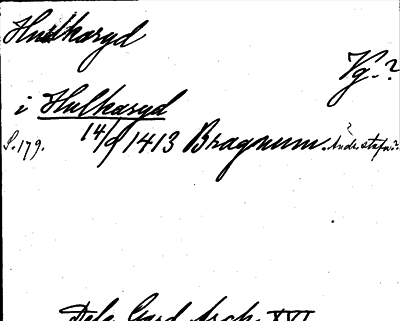 Hulkaryd
Vg.?
i Hulkaryd
S. 179. 14/9 1413 Bragnum.
Dela Gard. Arch. XVI